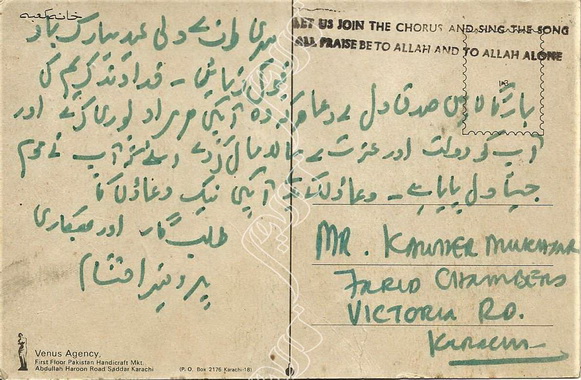 خانہ کعبہ
LET US JOIN THE CHORUS AND SING THE SONG
ALL PRAISE BE TO ALLAH AND TO ALLAH ALONE
میری طرف سے دلی عید مبارک باد
قبول فرمائیں - خداوند کریم کی
بارگاہ میں صدق دل سے دعا کہ وہ آپکی ہر مراد پوری کرے اور
آپ کو دولت اور عزت سے مالا مال کر دے آپ نے
جیسا دل پایا ہے - آپکی نیک دعاؤں کا
طلب گار اور
پرویز احتشام
MR. KAUSHER MUKHTAR
FARID CHAMBERS
VICTORIA RD.
KARACHI
Venus Agency,
First Floor Pakistan Handicraft Mkt.
Abdullah Haroon Road Saddar Karachi
(P. O. Box 2176 Karachi-18)